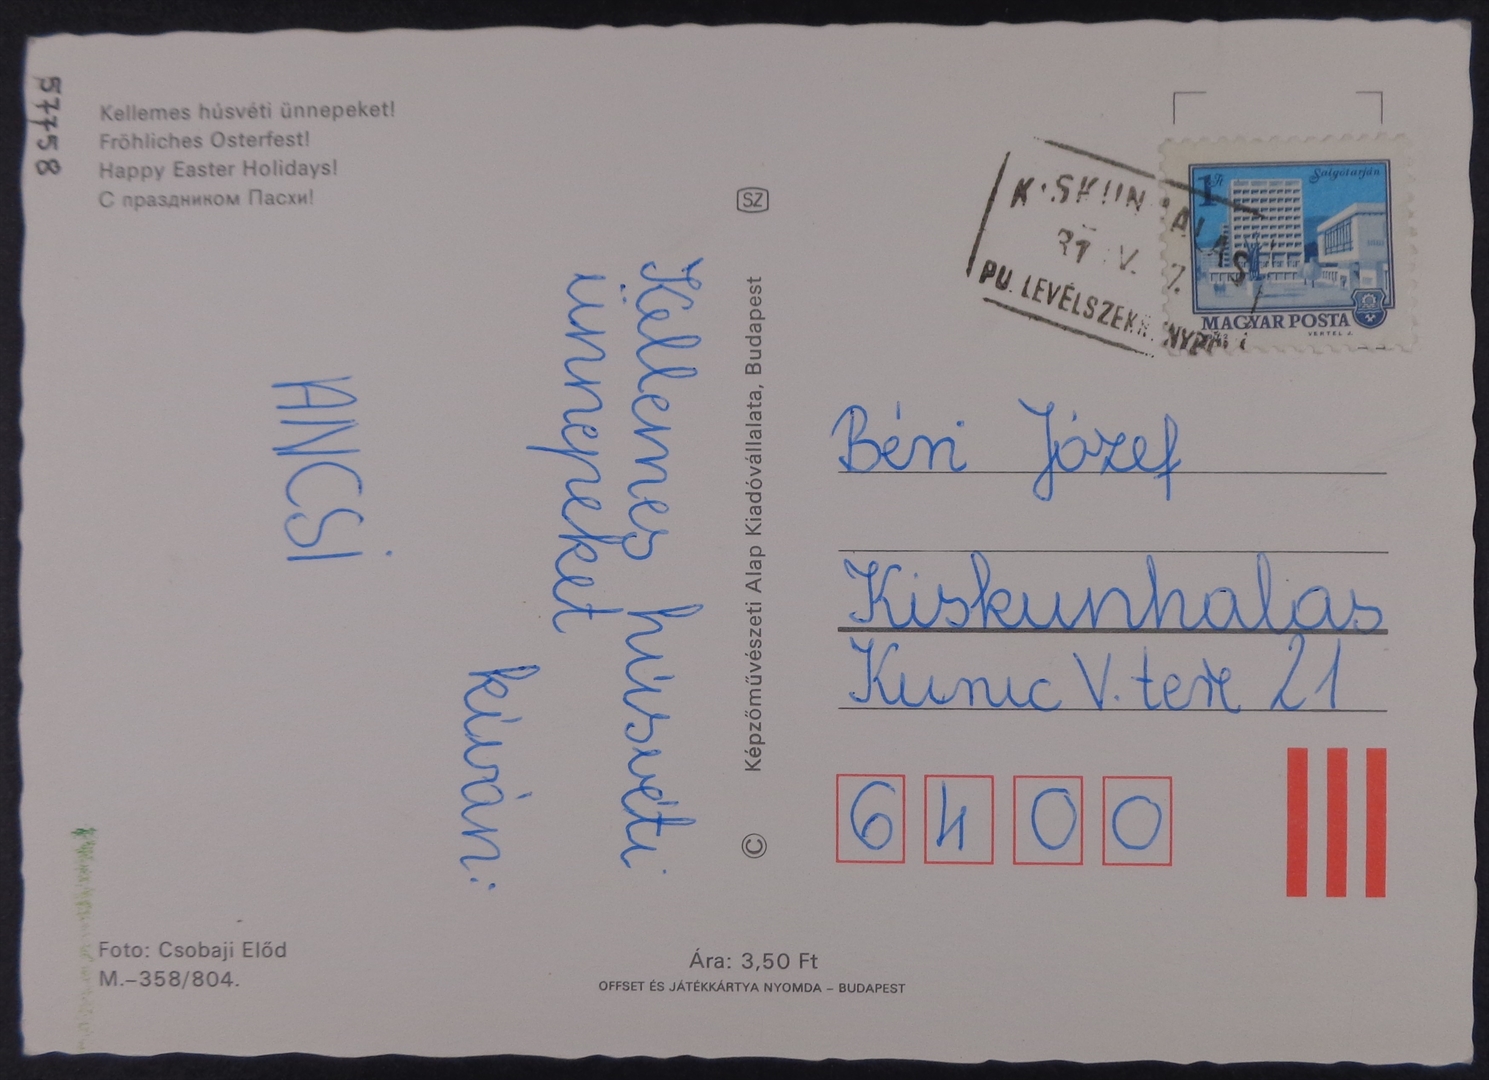 57758
Kellemes húsvéti ünnepeket!
Fröhliches Osterfest!
Happy Easter Holidays!
С праздником Пасхи!
Kellemes húsvéti
ünnepeket
kíván:
ANCSI
Foto: Csobaji Előd
M.–358/804.
SZ
Képzőművészeti Alap Kiadóvállalata, Budapest
©
Ára: 3,50 Ft
OFFSET ÉS JÁTÉKKÁRTYA NYOMDA – BUDAPEST
1 Ft
Salgótarján
MAGYAR POSTA
VERTEL J.
PU. LEVÉLSZEK
Béni József
Kiskunhalas
Kunic V. tere 21
6400